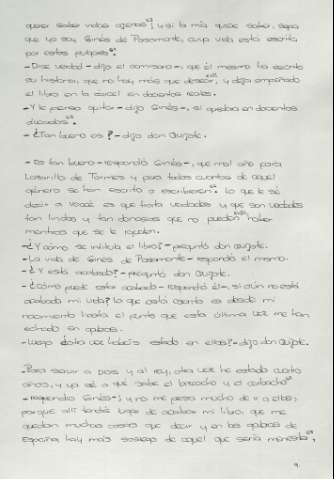 querer saber vidas ajenas; y si la mía quiere saber, sepa
que yo soy Ginés de Pasamonte, cuya vida está escrita
por estos pulgares.
-Dice verdad -dijo el comisario-, que él mismo ha escrito
su historia, que no hay más que desear, y deja empeñado
el libro en la cárcel en doscientos reales.
-Y le pienso quitar -dijo Ginés-, si quedara en doscientos
ducados.
-¿Tan bueno es? -dijo don Quijote.
-Es tan bueno -respondió Ginés-, que mal año para
Lazarillo de Tormes y para todos cuantos de aquel
género se han escrito o escribieren. Lo que le sé
decir a voacé es que trata verdades y que son verdades
tan lindas y tan donosas que no pueden haber
mentiras que se le igualen.
-¿Y cómo se intitula el libro? -preguntó don Quijote.
-La vida de Ginés de Pasamonte -respondió el mismo.
-¿Y está acabado? -preguntó don Quijote.
-¿Cómo puede estar acabado -respondió él-, si aún no está
acabada mi vida? Lo que está escrito es desde mi
nacimiento hasta el punto que esta última vez me han
echado en galeras.
-Luego ¿otra vez habéis estado en ellas? -dijo don Quijote.
-Para servir a Dios y al rey, otra vez he estado cuatro
años, y ya sé a qué sabe el bizcocho y el corbacho
-respondió Ginés-; y no me pesa mucho de ir a ellas,
porque allí tendré lugar de acabar mi libro, que me
quedan muchas cosas que decir y en las galeras de
España hay más sosiego de aquel que sería menester,